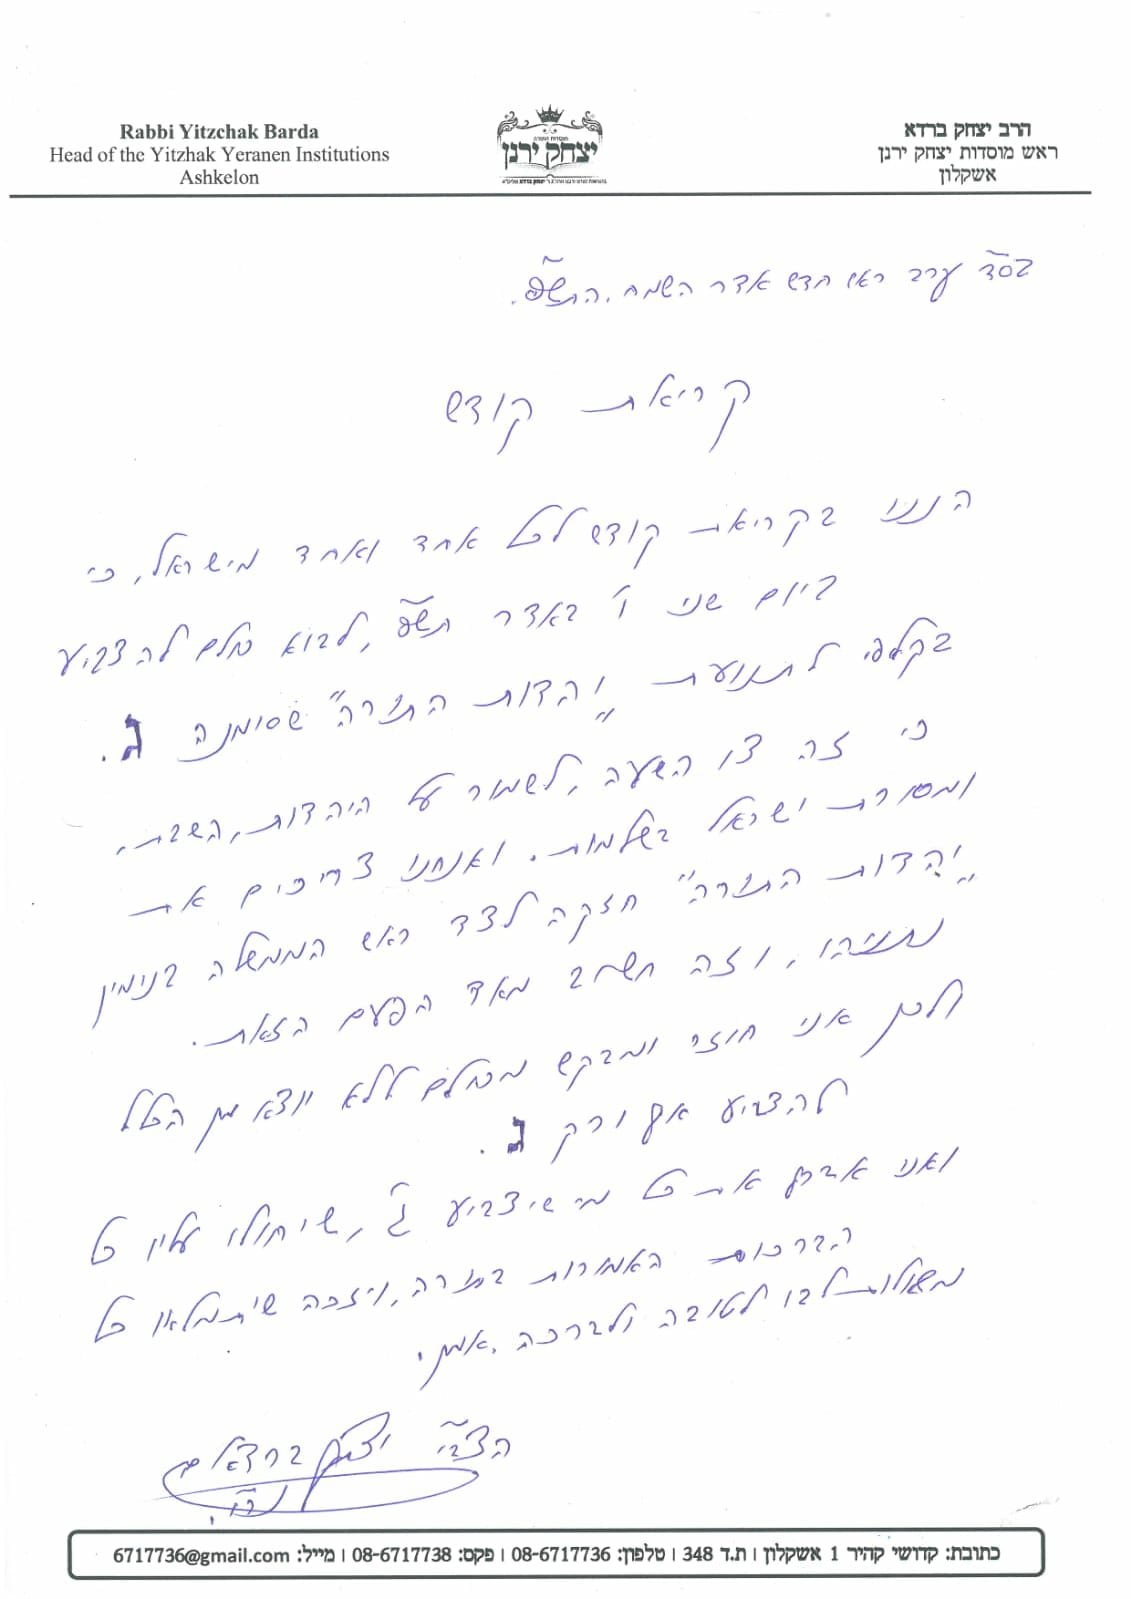 Rabbi Yitzchak Barda
Head of the Yitzhak Yeranen Institutions
Ashkelon
מוסדות התורה
יצחק ירנן
הרב יצחק ברדא
ראש מוסדות יצחק ירנן
אשקלון
בס"ד ערב ראש חדש אדר השמח. התש"פ.
קריאת קודש
הננו בקריאת קודש לכל אחד ואחד מישראל, כי
ביום שני ו' באדר תש"פ, לבוא כולם להצביע
בקלפי לתנועת "יהדות התורה" שסימנה ג.
כי זה צו השעה, לשמור על היהדות, השבת,
ומסורת ישראל בשלמות. ואנחנו צריכים את
"יהדות התורה" חזקה לצד ראש הממשלה בנימין
נתניהו, וזה חשוב מאד הפעם הזאת.
ולכן אני חוזר ומבקש מכולם ללא יוצא מן הכלל
להצביע אך ורק ג.
ואני אברך את כל מי שיצביע ג', שיחולו עליו כל
הברכות האמורות בתורה, ויזכה שיתמלאו כל
משאלות לבו לטובה ולברכה. אמן.
הצב"י יצחק ברדא
כתובת: קדושי קהיר 1 אשקלון | ת.ד 348 | טלפון: 08-6717736 | פקס: 08-6717738 | מייל: 6717736@gmail.com